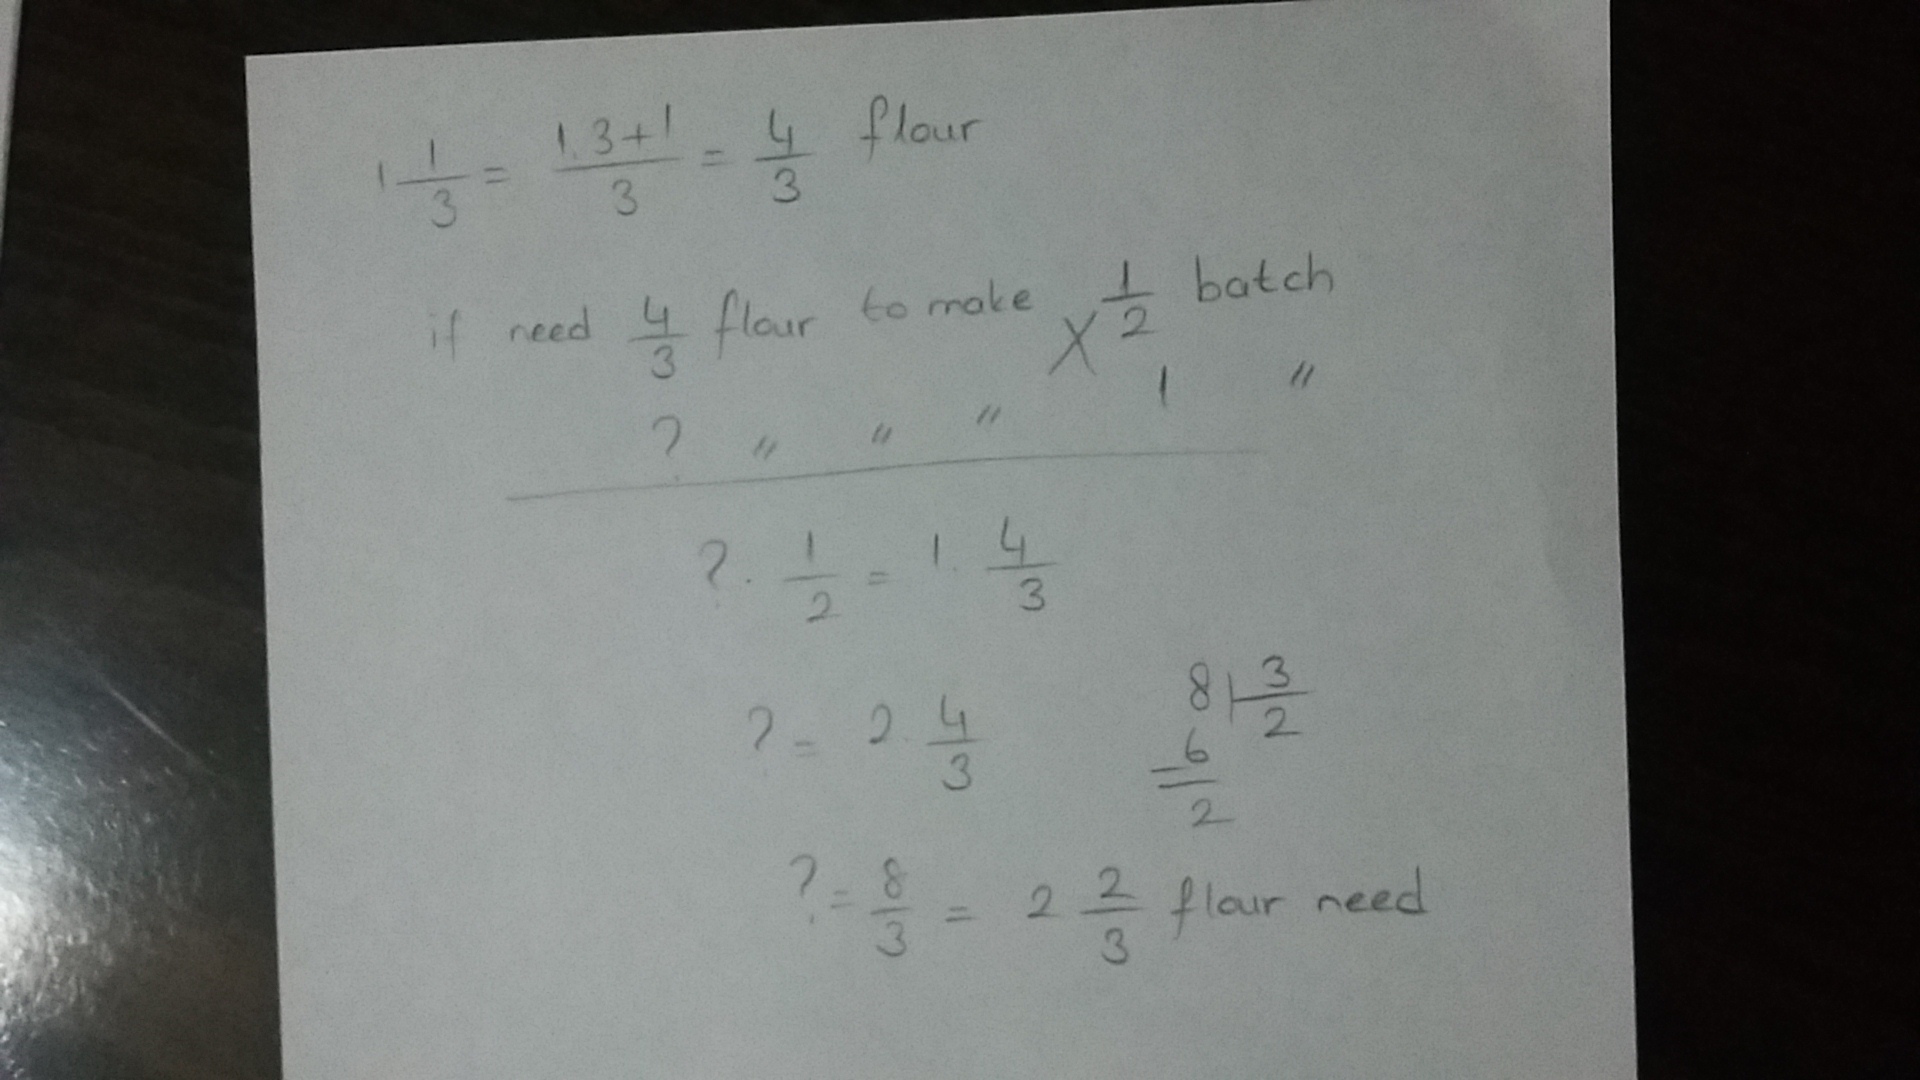 1 1/3 = 1.3+1/3 = 4/3 flour
if need 4/3 flour to make 1/2 batch
? " " " 1 "
?. 1/2 = 1. 4/3
? = 2. 4/3
8 3
6 2
2
? = 8/3 = 2 2/3 flour need